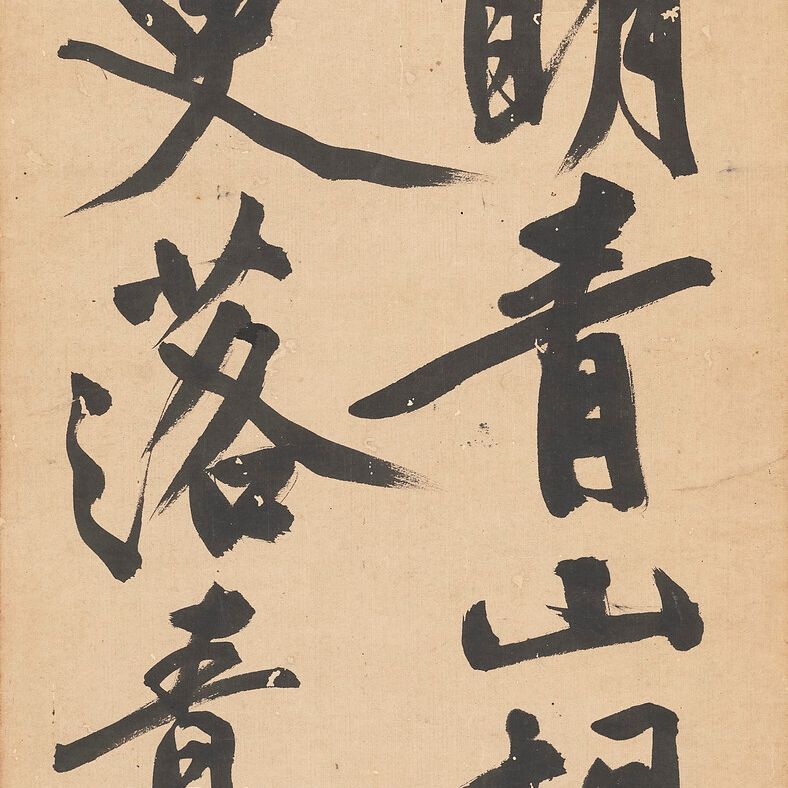 明青山
更落青